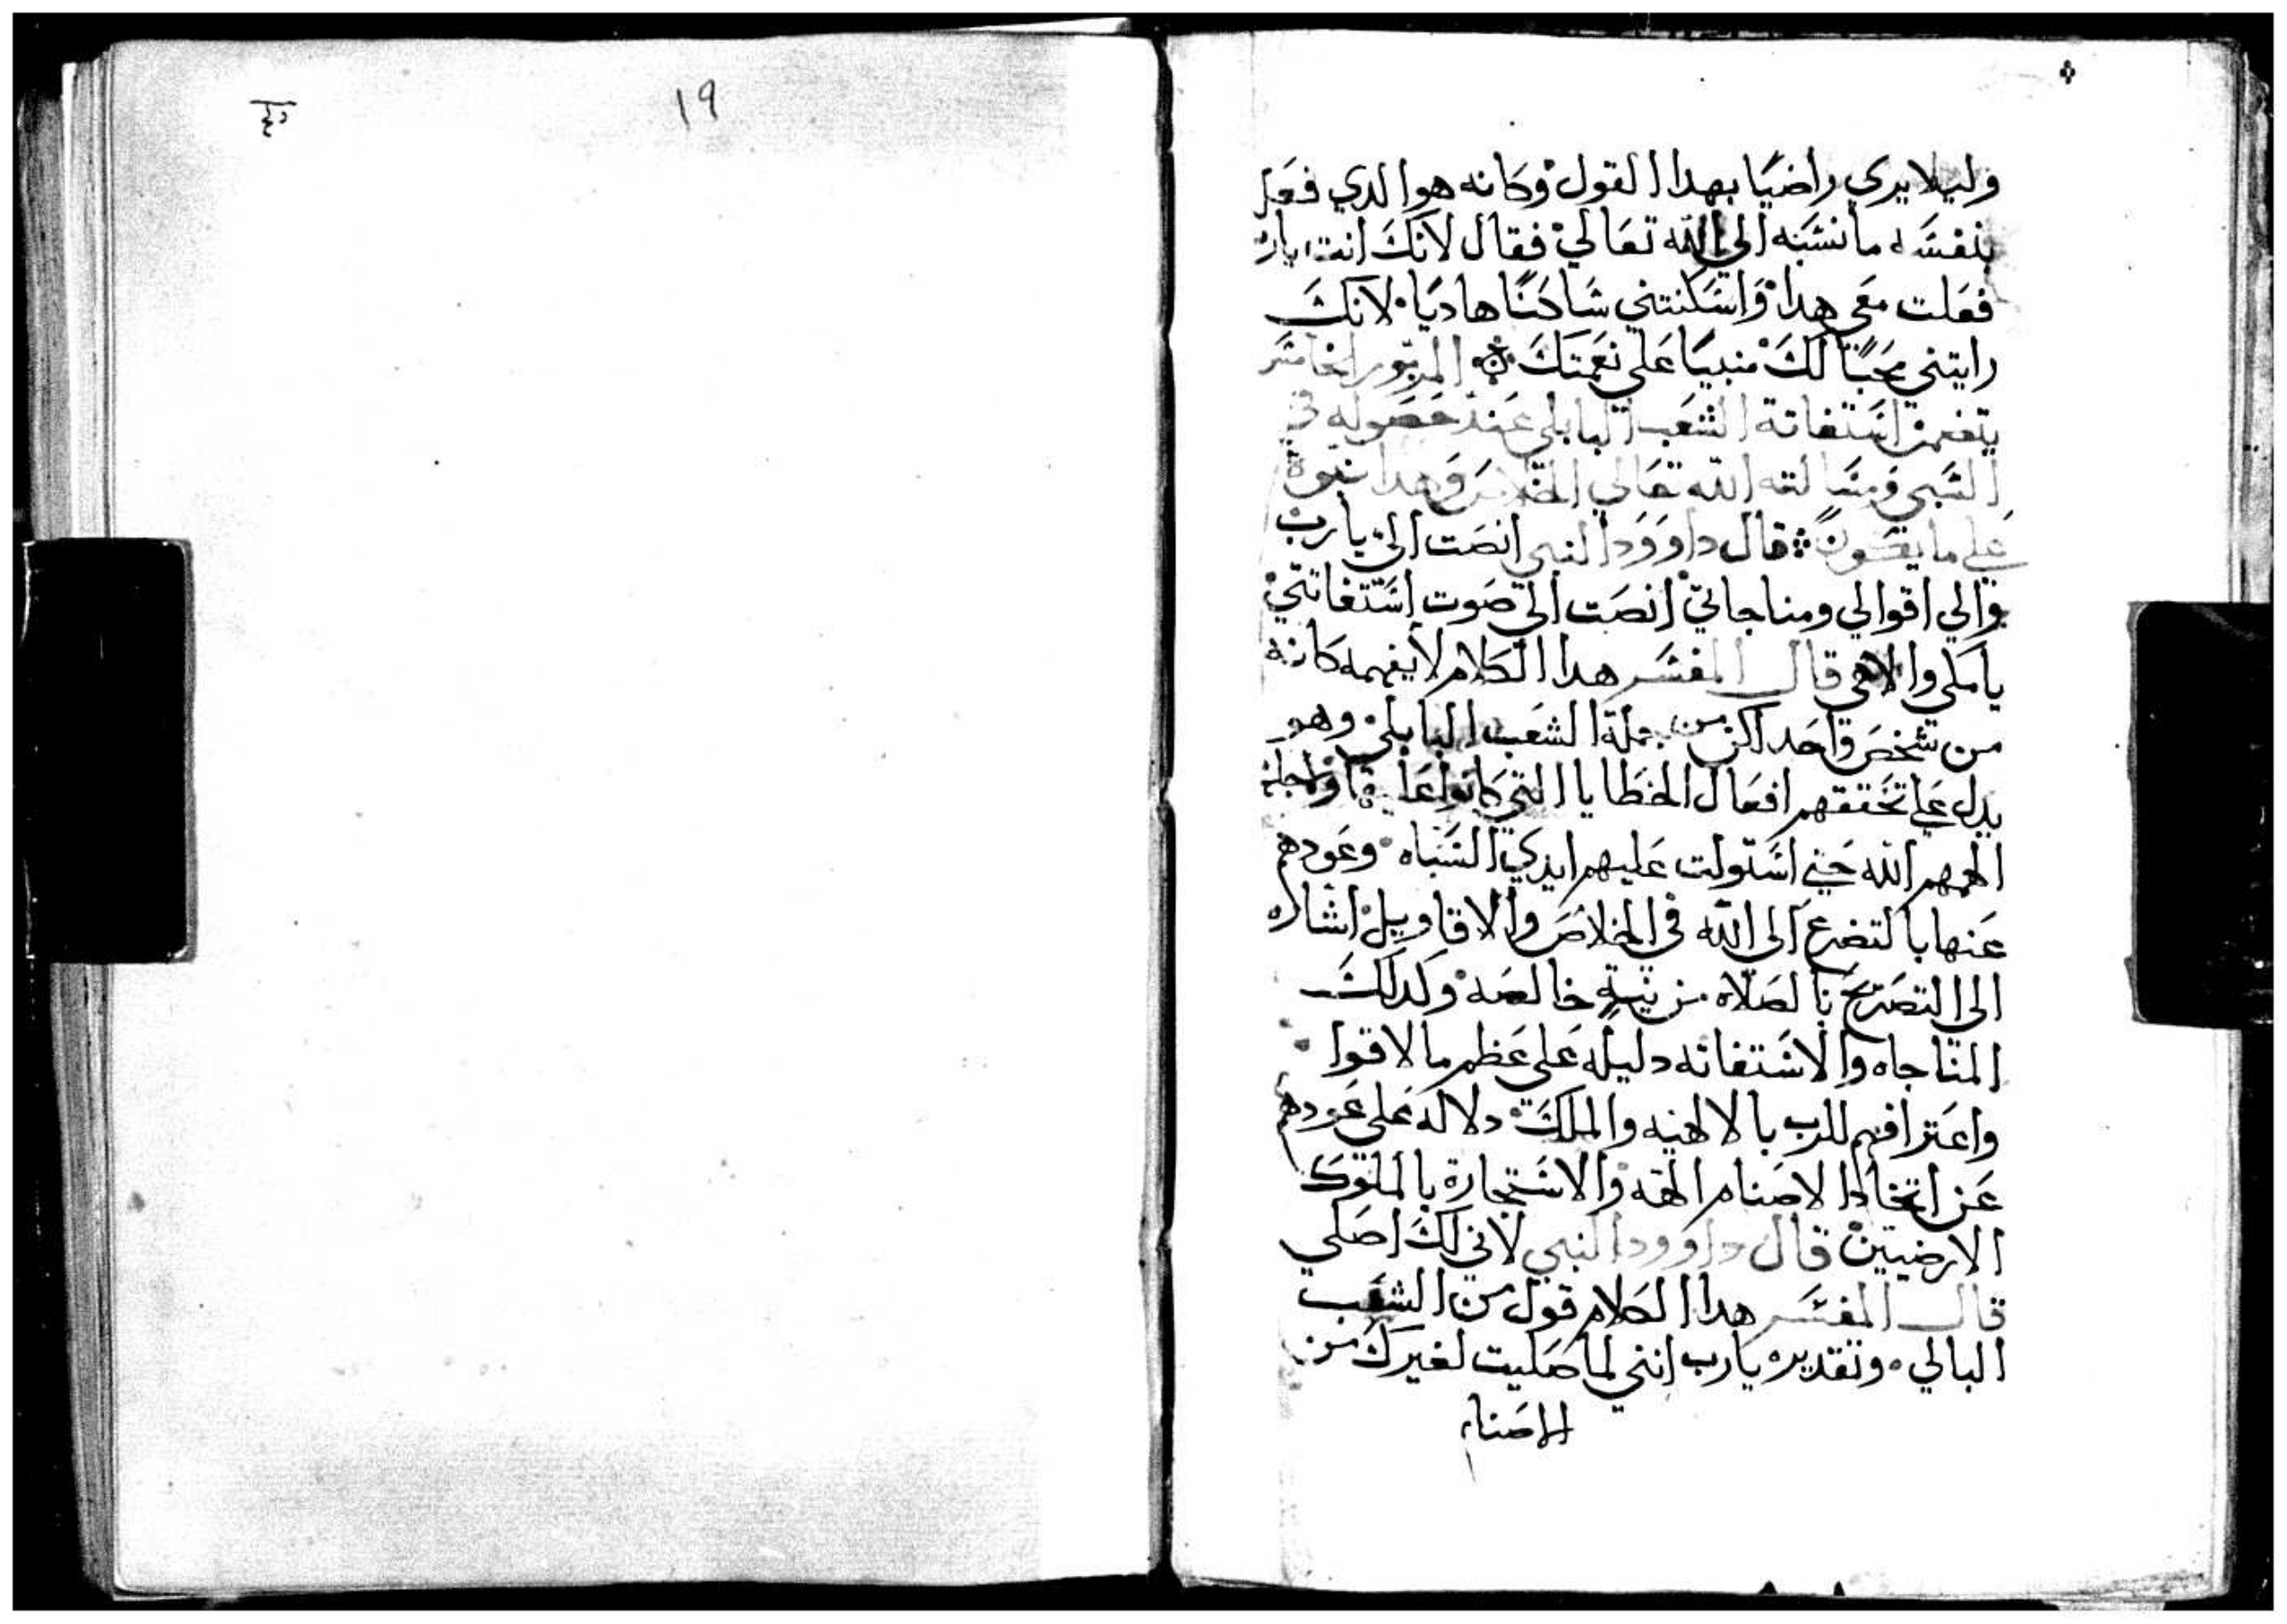 وليلا يري راضيا بهدا القول وكانه هو الدي فعل
بنفسه ما نسبه الي الله تعالي فقال لانك انت يارب
فعلت معي هدا واسكنتني ساكنا هاديا لانك
رايتني محبا لك منبيا علي نعمتك المزمور الخامس
يتضمن استغاتة الشعب البابلي عند حصوله في
السبي ومسالته الله تعالي الخلاص وهدا نبوة
علي ما يقصون قال داوود النبي انصت الي يارب
والي اقوالي ومناجاتي انصت الي صوت استغاتتي
ياملكي والاهي قال المفسر هدا الكلام لا يفهمه كانه
من شخص واحد لكن من جملة الشعب البابلي وهو
يدل علي تحققهم افعال الخطايا التي كانوا
الهمهم الله حتي استولت عليهم ايدي السباه وعودهم
عنها بالتضرع الي الله في الخلاص والاقاويل اشاره
الي التصريح بالصلاه من نية خالصه وكدلك
المناجاه والاستغاته دليله علي عظم ما لاقوا
واعترافهم للرب بالالهيه والملك دلاله علي عودهم
عن اتخاد الاصنام الهه والاستجارة بالملوك
الارضيين قال داوود النبي لاني لك اصلي
قال المفسر هدا الكلام قول من الشعب
البالي وتقديره يارب انني لما صليت لغيرك من
الاصنام
19